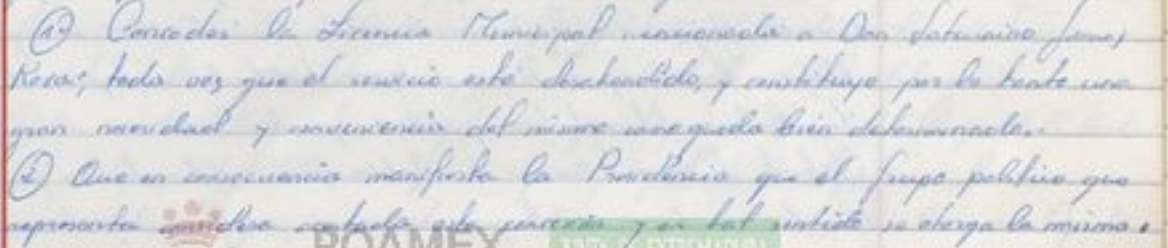 1º Conceder la Licencia Municipal mencionada a Don Saturnino
Rosas, toda vez que el servicio está desatendido, y constituye por lo tanto una
gran necesidad y conveniencia del mismo como queda bien determinado.-
2) Que en consecuencia manifiesta la Presidencia que el grupo político que
representa considera esta y en tal sentido se otorga la misma.
ROAMEX